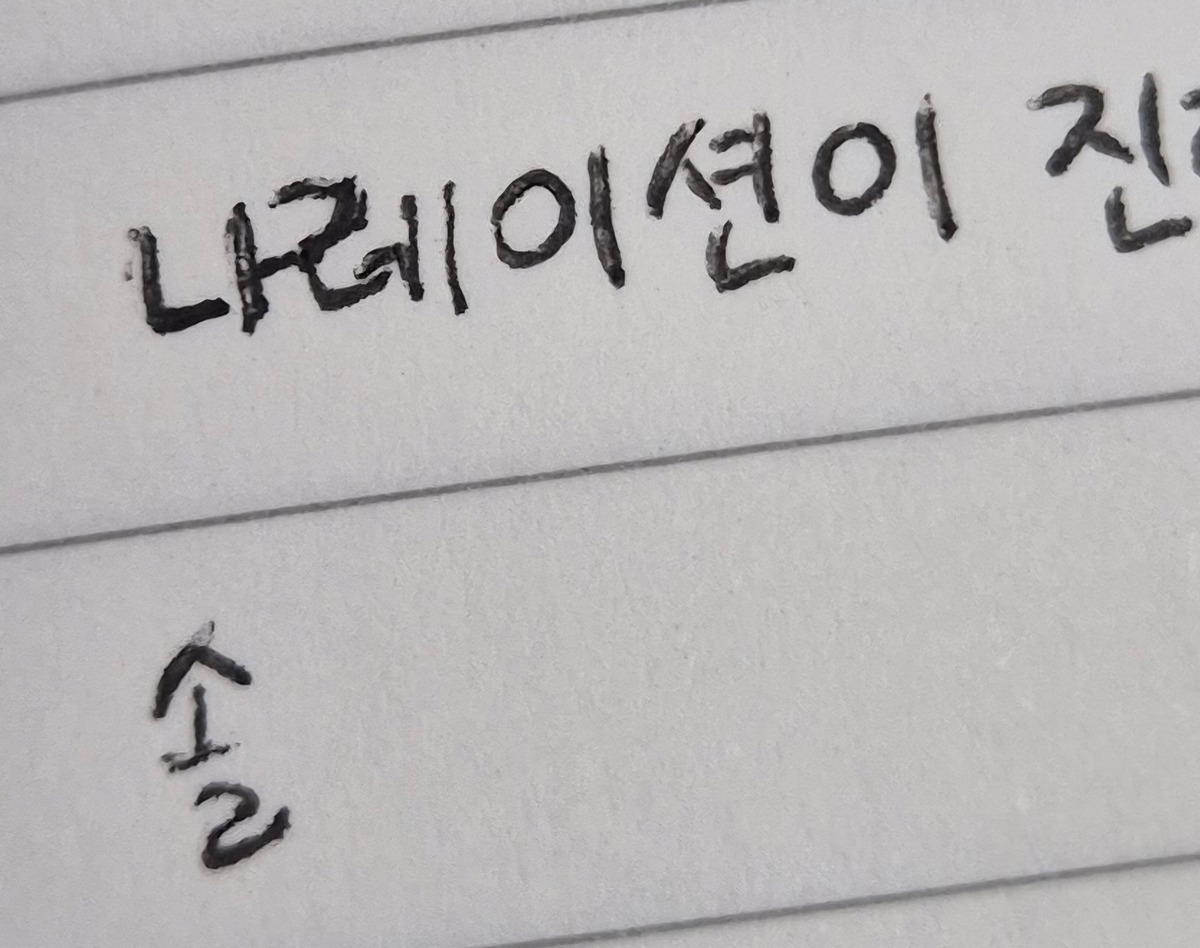 나레이션이 진
솔